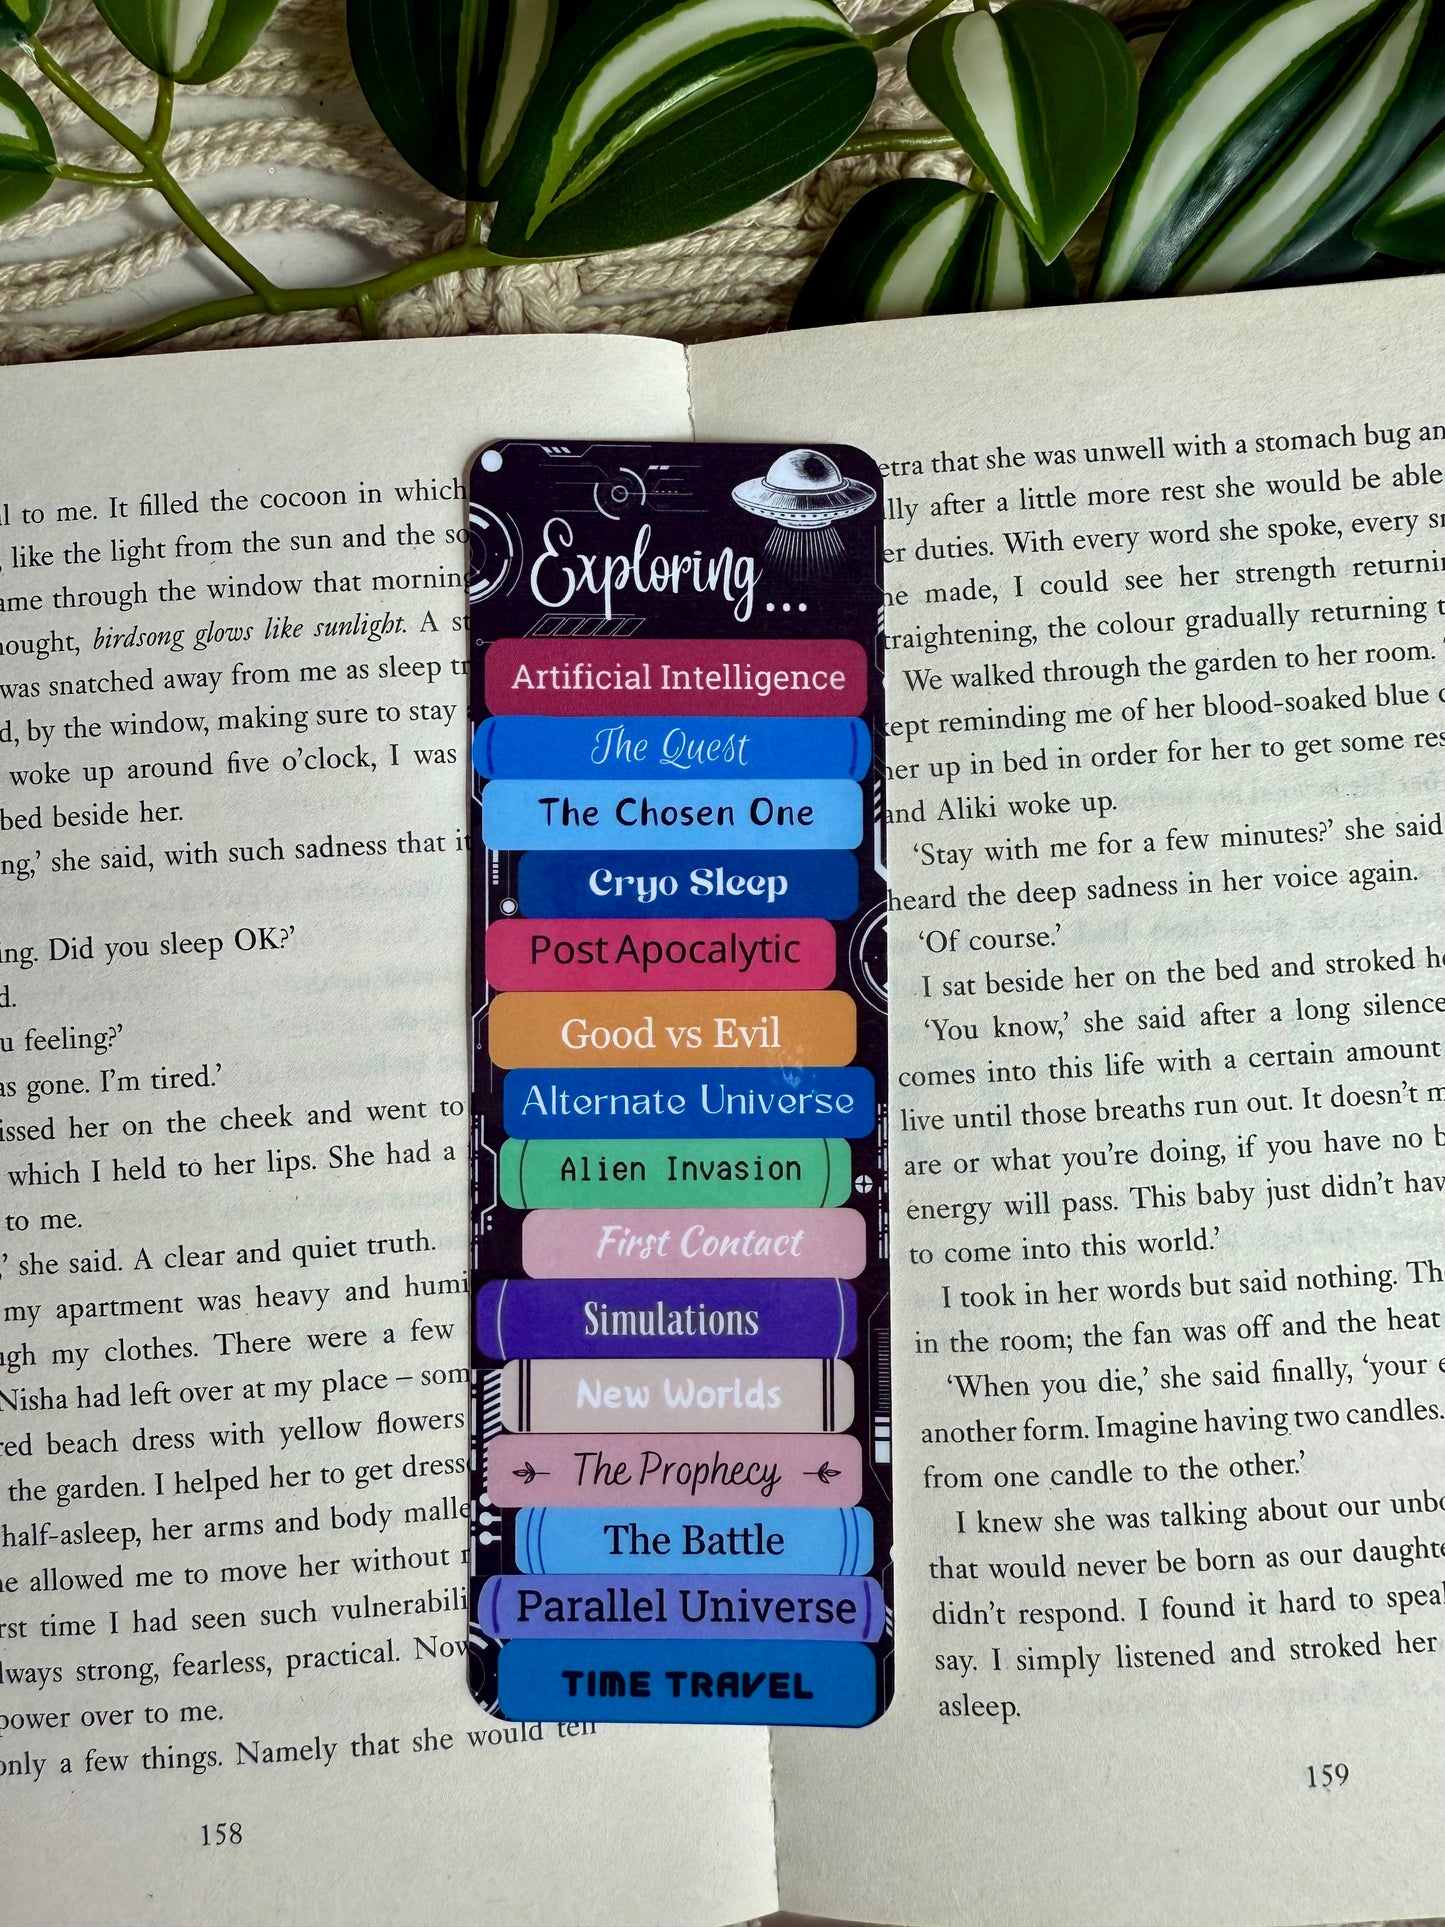 l to me. It filled the cocoon in which
like the light from the sun and the so
ame through the window that morning
ought, birdsong glows like sunlight. A st
was snatched away from me as sleep tr
d, by the window, making sure to stay
woke up around five o’clock, I was
bed beside her.
ng,’ she said, with such sadness that it
ing. Did you sleep OK?’
d.
u feeling?’
as gone. I’m tired.’
issed her on the cheek and went to
which I held to her lips. She had a
to me.
,’ she said. A clear and quiet truth.
my apartment was heavy and humi
ugh my clothes. There were a few
Nisha had left over at my place – som
red beach dress with yellow flowers
the garden. I helped her to get dress
half-asleep, her arms and body malle
e allowed me to move her without r
rst time I had seen such vulnerabili
lways strong, fearless, practical. Now
power over to me.
only a few things. Namely that she would tell
158
Exploring...
Artificial Intelligence
The Quest
The Chosen One
Cryo Sleep
Post Apocalytic
Good vs Evil
Alternate Universe
Alien Invasion
First Contact
Simulations
New Worlds
The Prophecy
The Battle
Parallel Universe
TIME TRAVEL
etra that she was unwell with a stomach bug an
lly after a little more rest she would be able
er duties. With every word she spoke, every sm
he made, I could see her strength returni
traightening, the colour gradually returning t
We walked through the garden to her room.
kept reminding me of her blood-soaked blue
her up in bed in order for her to get some res
and Aliki woke up.
‘Stay with me for a few minutes?’ she said
heard the deep sadness in her voice again.
‘Of course.’
I sat beside her on the bed and stroked he
‘You know,’ she said after a long silence
comes into this life with a certain amount
live until those breaths run out. It doesn’t m
are or what you’re doing, if you have no b
energy will pass. This baby just didn’t hav
to come into this world.’
I took in her words but said nothing. Th
in the room; the fan was off and the heat
‘When you die,’ she said finally, ‘your e
another form. Imagine having two candles.
from one candle to the other.’
I knew she was talking about our unbo
that would never be born as our daughte
didn’t respond. I found it hard to speak
say. I simply listened and stroked her
asleep.
159